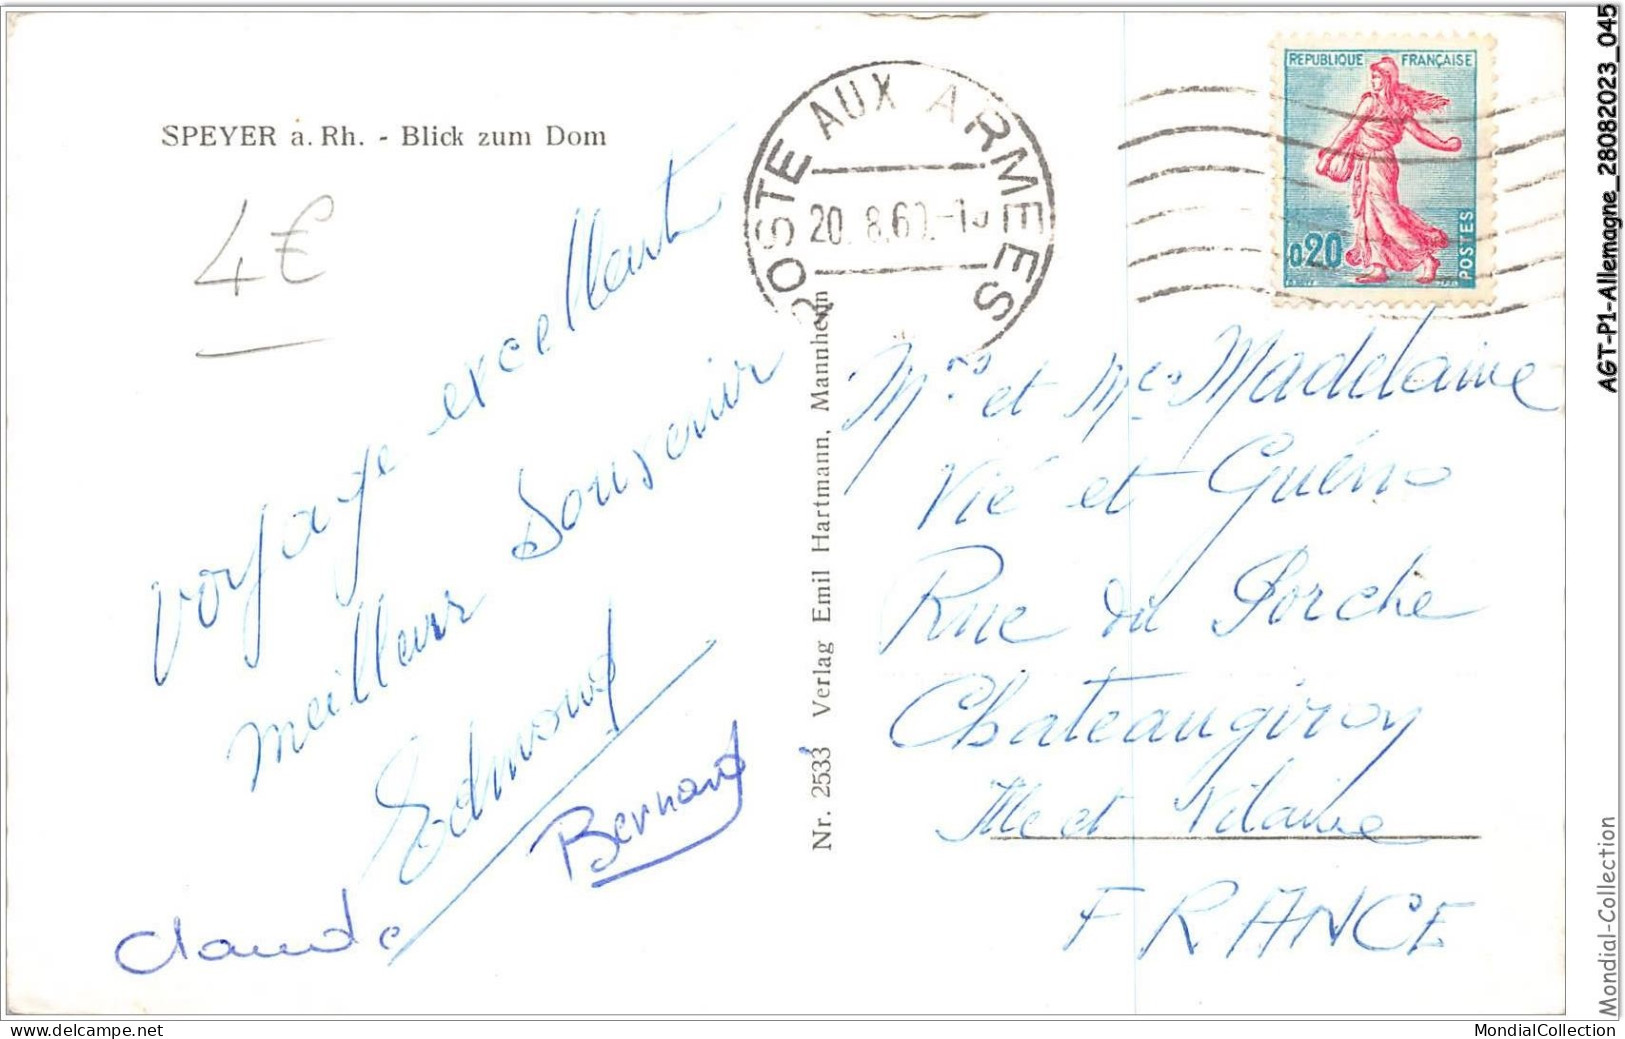 SPEYER a. Rh. - Blick zum Dom
4€
voyage excellent
meilleur Souvenir
Edmond
Bernard
Claude
Nr. 2533 Verlag Emil Hartmann, Mannheim
POSTE AUX ARMEES
20. 8.60.
REPUBLIQUE FRANÇAISE
0,20
POSTES
Mr. et Me Madelaine
Vié et Guéno
Rue du Porche
Chateaugiroy
Ille et Vilaine
FRANCE
AGT-P1-Allemagne_28082023_045
Mondial-Collection
www.delcampe.net
MondialCollection